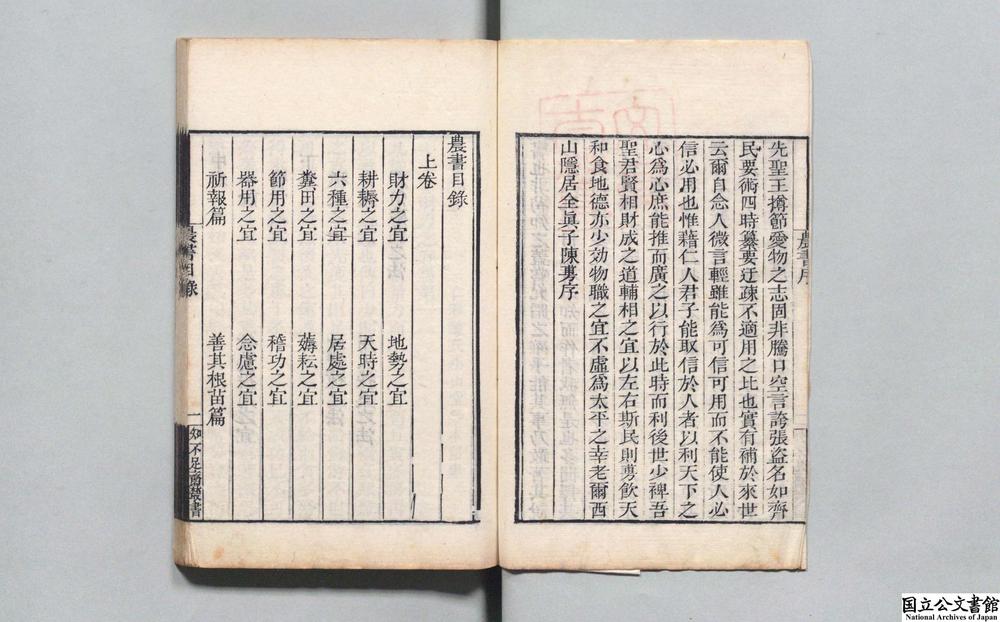 先聖王撙節愛物之志固非騰口空言誇張盜名如齊
民要術四時纂要迂疎不適用之比也實有補於來世
云爾自念人微言輕雖能為可信可用而不能使人必
信必用也惟藉仁人君子能取信於人者以利天下之
心為心庶能推而廣之以行於此時而利後世少裨吾
聖君賢相財成之道輔相之宜以左右斯民則旉飲天
和食地德亦少効物職之宜不虛為太平之幸老爾西
山隱居全眞子陳旉序
農書序
農書目錄
上卷
財力之宜 地勢之宜
耕耨之宜 天時之宜
六種之宜 居處之宜
糞田之宜 薅耘之宜
節用之宜 稽功之宜
器用之宜 念慮之宜
祈報篇 善其根苗篇
農書目錄 一 知不足齋叢書
国立公文書館
National Archives of Japan